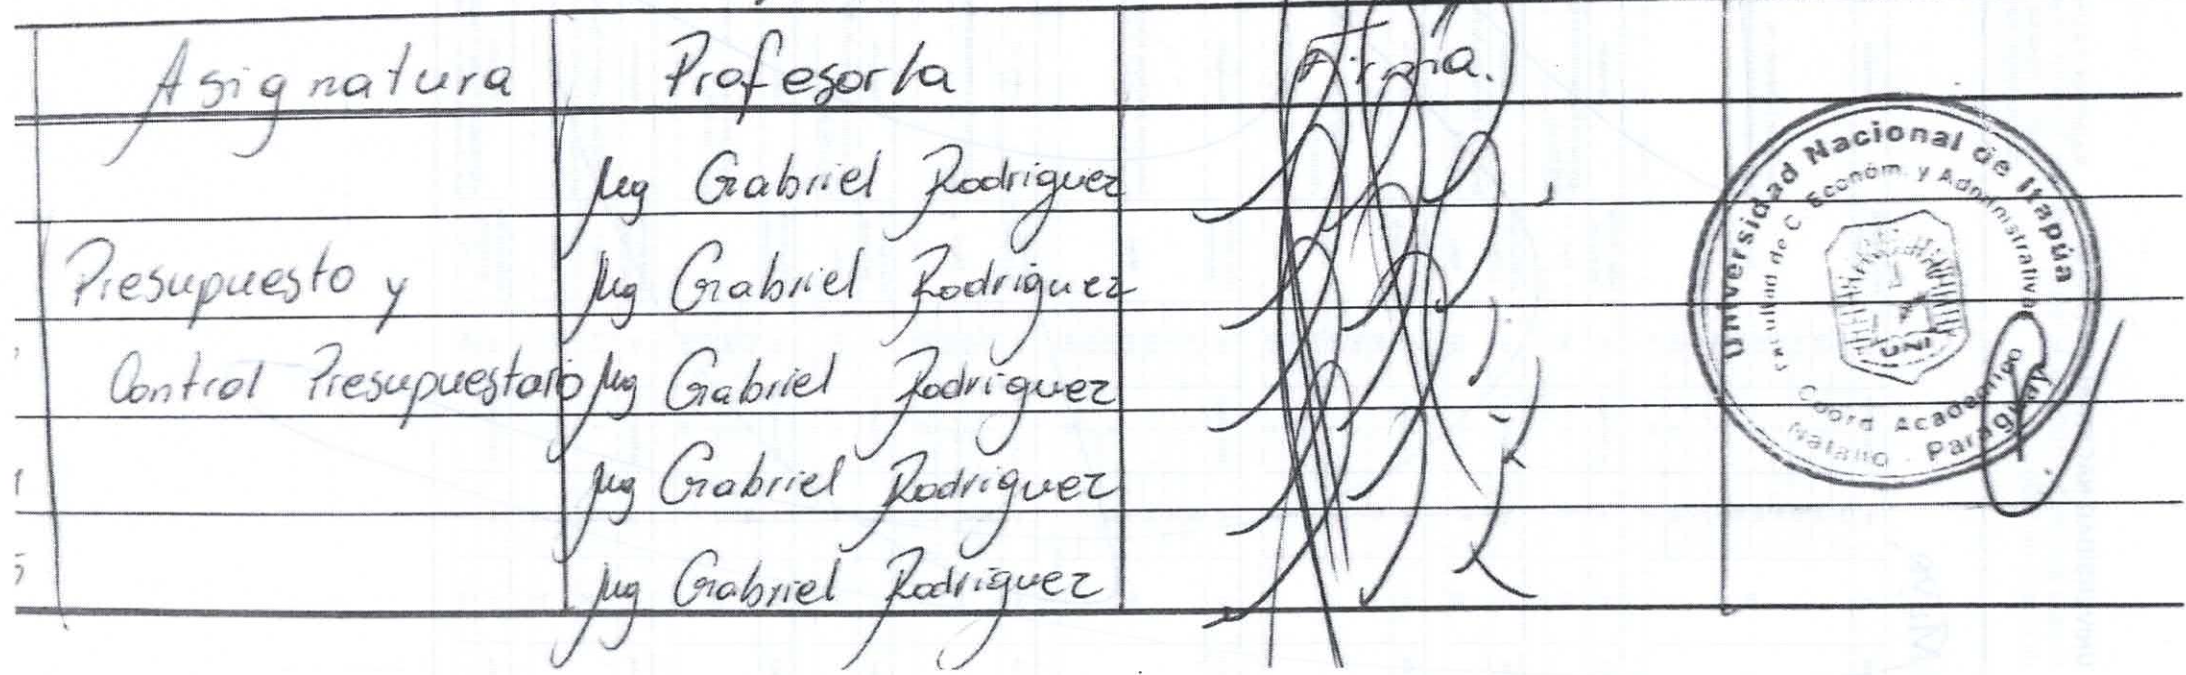 Asignatura Profesor/a Firma.
Mg Gabriel Rodriguez
Presupuesto y Mg Gabriel Rodriguez
Control Presupuestario Mg Gabriel Rodriguez
Mg Gabriel Rodriguez
Mg Gabriel Rodriguez
Universidad Nacional de Itapúa
Facultad de C Económ. y Administrativa
UNI
Coord Academico
Natalio - Paraguay